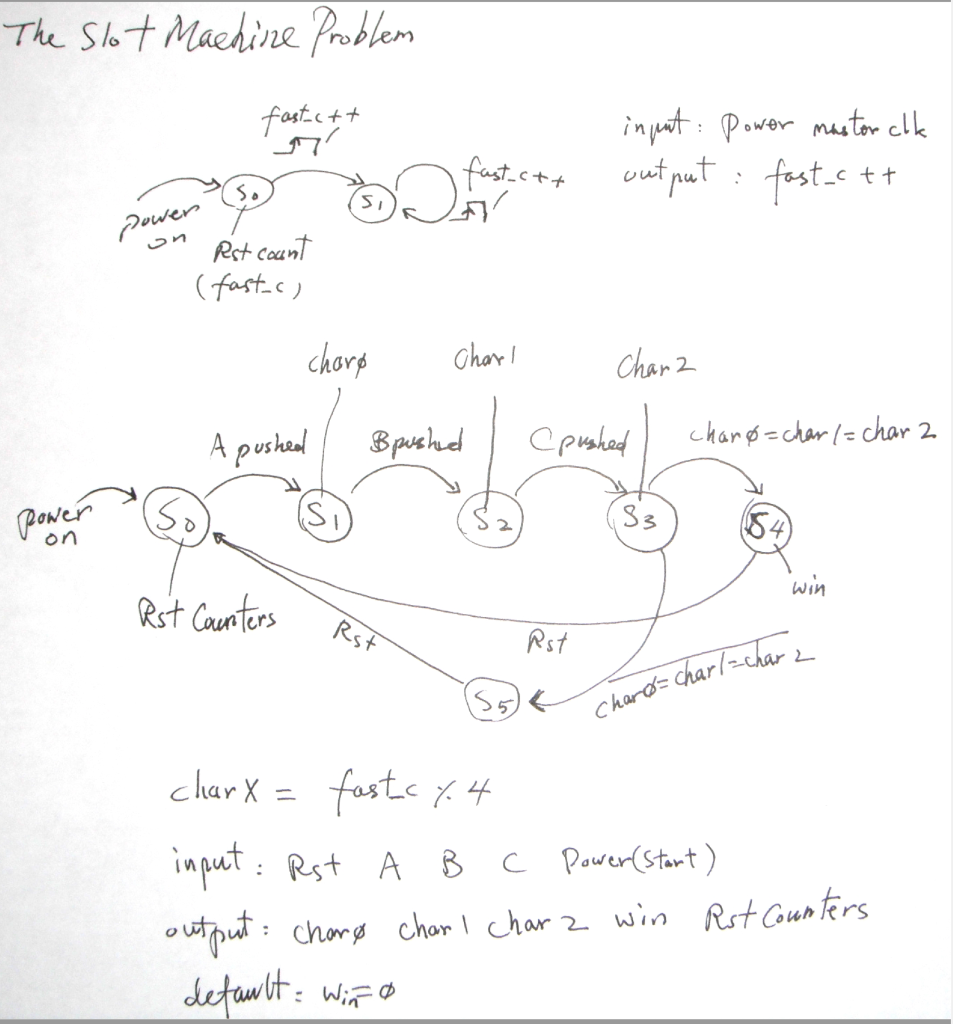 The Slot Machine Problem
fast_c++
input: Power master clk
output: fast_c++
fast_c++
S0
S1
power on
Rst count
(fast_c)
char0
Char1
Char2
A pushed
B pushed
C pushed
char0=char1=char2
power on
S0
S1
S2
S3
S4
win
Rst Counters
Rst
Rst
char0=char1=char2
S5
charX = fast_c % 4
input: Rst A B C Power(Start)
output: char0 char1 char2 win Rst Counters
default: win=0